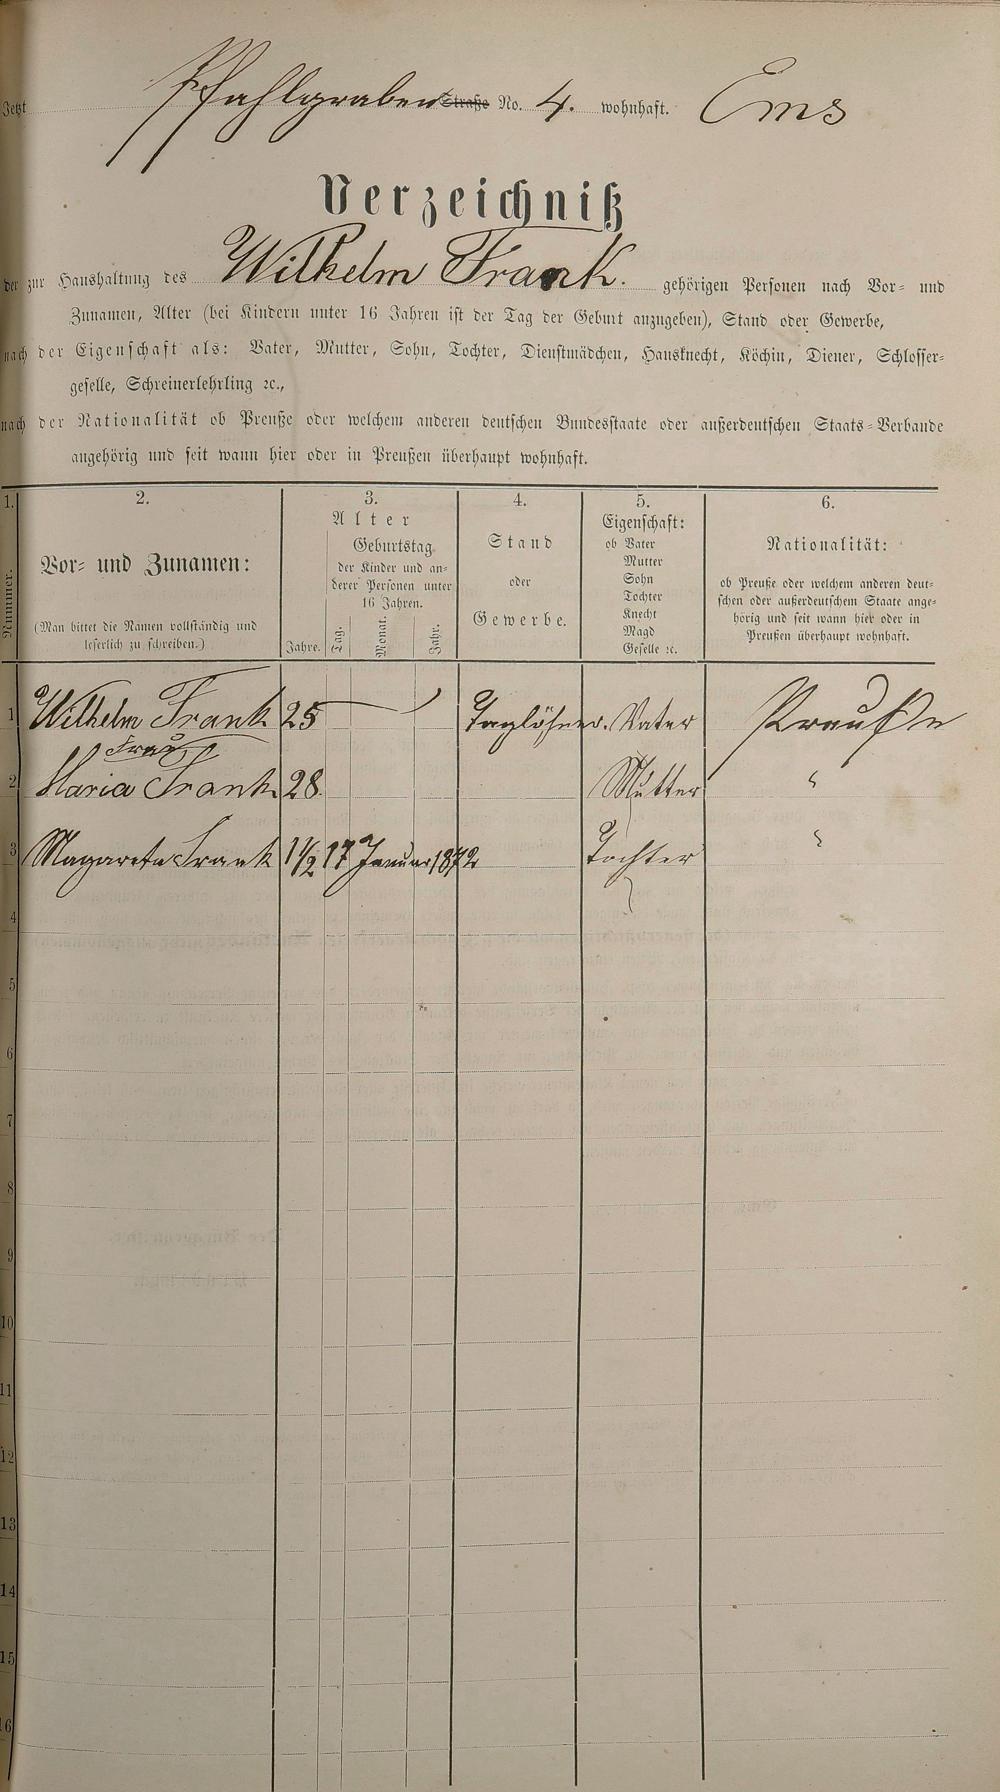 Jetzt Pfahlgraben Straße No. 4. wohnhaft. Ems
Verzeichniß
der zur Haushaltung des Wilhelm Frank. gehörigen Personen nach Vor- und
Zunamen, Alter (bei Kindern unter 16 Jahren ist der Tag der Geburt anzugeben), Stand oder Gewerbe,
nach der Eigenschaft als: Vater, Mutter, Sohn, Tochter, Dienstmädchen, Hausknecht, Köchin, Diener, Schlosser-
geselle, Schreinerlehrling ꝛc.,
nach der Nationalität ob Preuße oder welchem anderen deutschen Bundesstaate oder außerdeutschen Staats-Verbande
angehörig und seit wann hier oder in Preußen überhaupt wohnhaft.
1. 2. 3. 4. 5. 6.
Nummer.
Vor- und Zunamen:
(Man bittet die Namen vollständig und
leserlich zu schreiben.)
Alter
Geburtstag
der Kinder und an-
derer Personen unter
16 Jahren.
Jahre. Tag. Monat. Jahr.
Stand
oder
Gewerbe.
Eigenschaft:
ob Vater
Mutter
Sohn
Tochter
Knecht
Magd
Geselle ꝛc.
Nationalität:
ob Preuße oder welchem anderen deut-
schen oder außerdeutschem Staate ange-
hörig und seit wann hier oder in
Preußen überhaupt wohnhaft.
1 Wilhelm Frank 25 Taglöhner. Vater Preuße
Frau
2 Maria Frank 28 Mutter "
3 Magareta Frank 1½ 17 Januar 1872 Tochter "
4
5
6
7
8
9
10
11
12
13
14
15
16